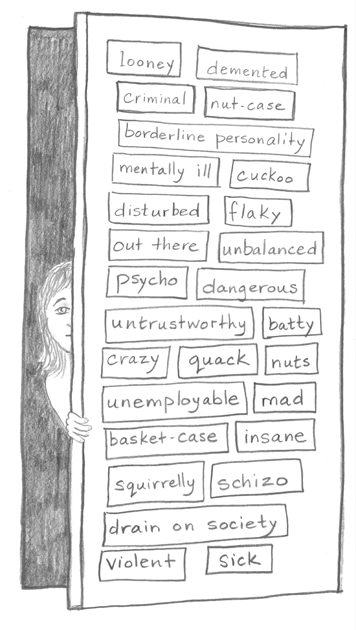 looney demented
Criminal nut-case
borderline personality
mentally ill cuckoo
disturbed flaky
out there unbalanced
psycho dangerous
untrustworthy batty
crazy quack nuts
unemployable mad
basket-case insane
squirrelly schizo
drain on society
violent sick